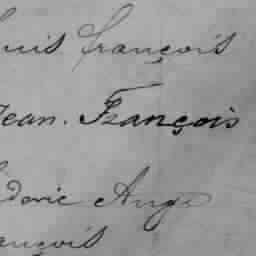 uis françois
Jean. François
déric Ange
ançois